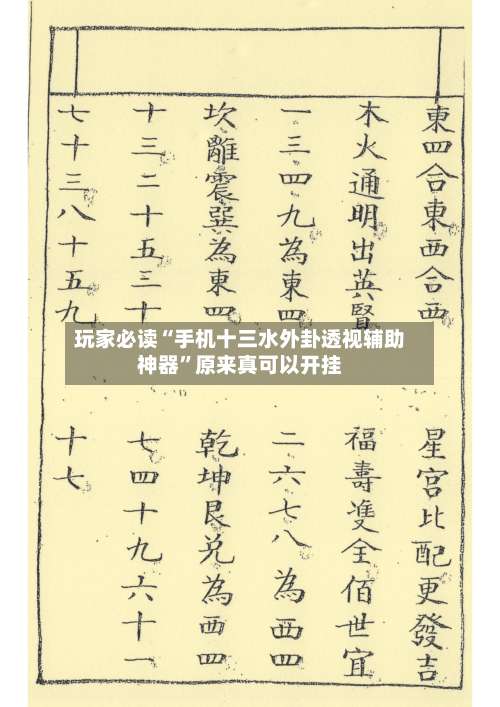 東四合東西合西
星宮比配更發吉
木火通明出英賢
福壽雙全佰世宜
一三四九為東四
二六七八為西四
坎離震巽為東四
乾坤艮兑為西四
十三二十五三十
七四十九六十一
七十三八十五九
十七
玩家必读“手机十三水外卦透视辅助
神器”原来真可以开挂